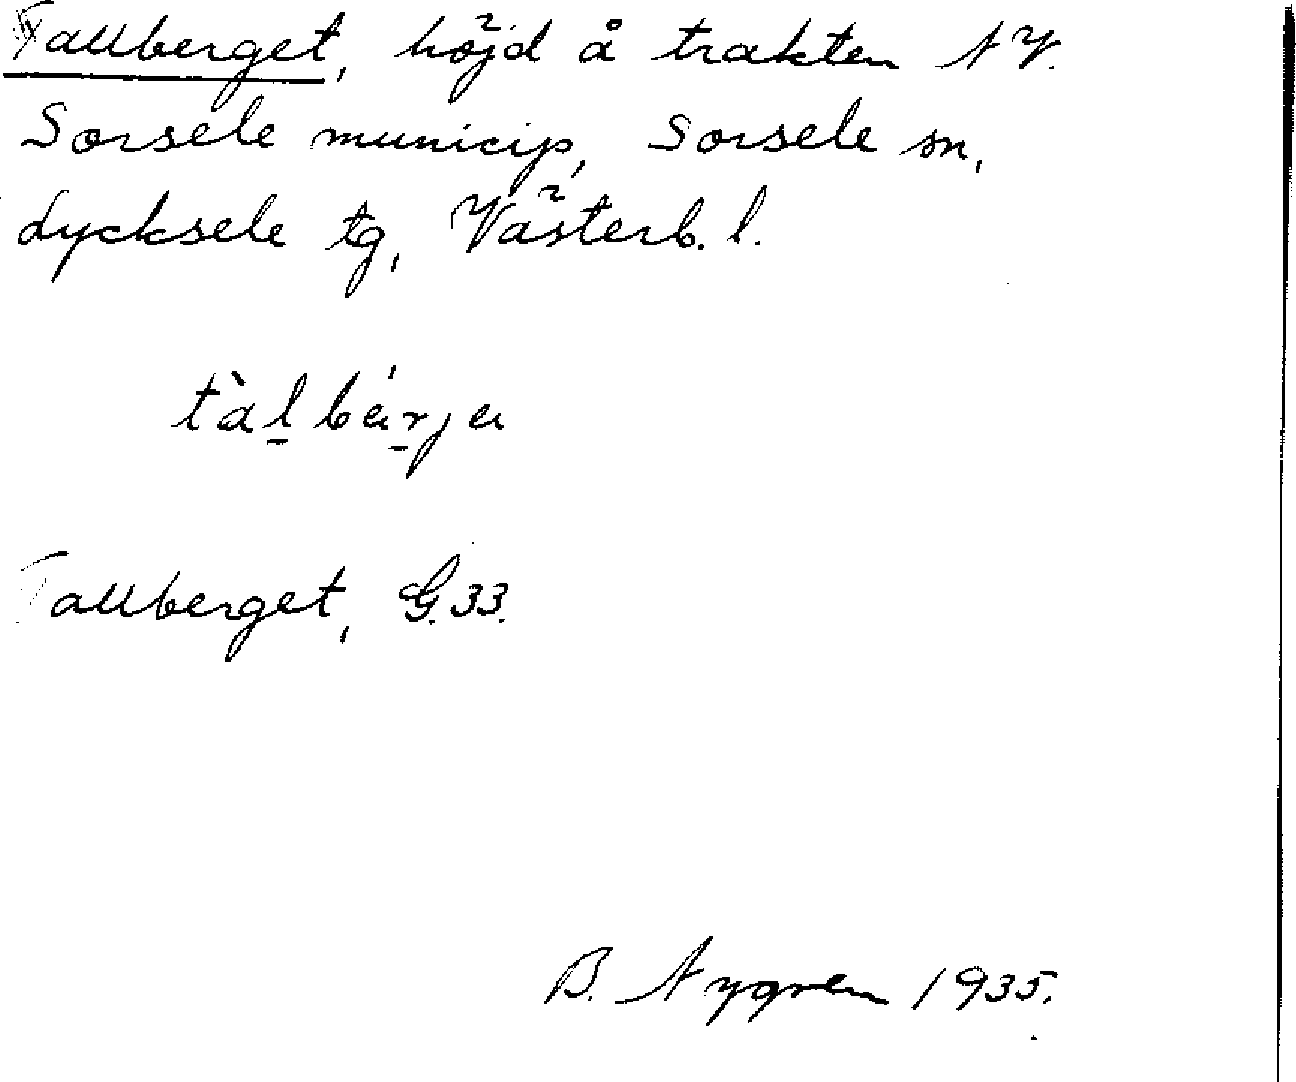 Tallberget, höjd å trakten NV.
Sorsele municip, Sorsele sn,
Lycksele tg, Västerb. l.
tàl̠bér̠ja
Tallberget, G.33.
B. Nygren 1935.